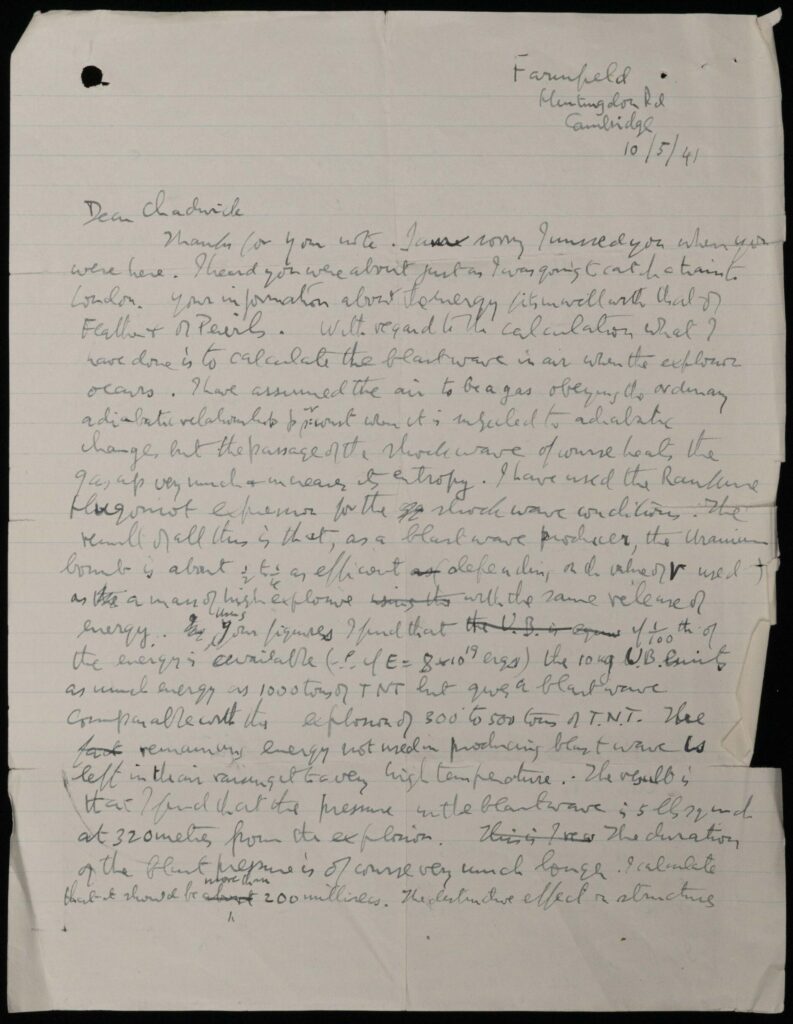 Farmfield
Huntingdon Rd
Cambridge
10/5/41
Dear Chadwick
Thanks for your note. I am sorry I missed you when you
were here. I heard you were about just as I was going to catch a train to
London. Your information about energy fits in well with that of
Feather & of Peierls. With regard to the calculation what I
have done is to calculate the blast wave in air when the explosion
occurs. I have assumed the air to be a gas obeying the ordinary
adiabatic relationship when it is subjected to adiabatic
changes but the passage of the shock wave of course heats the
gas up very much & increases its entropy. I have used the Rankine
Hugoniot expression for the shock wave conditions. The
result of all this is that, as a blast wave producer, the Uranium
bomb is about as efficient depending on the value of γ used
as a mass of high explosive with the same release of
energy. Using your figures I find that if 1/100 th of
the energy is available (i.e. if E = 8×10¹⁹ ergs) the 10 kg U.B. emits
as much energy as 1000 tons of TNT but gives a blast wave
comparable with the explosion of 300 to 500 tons of T.N.T. The
remaining energy not used in producing blast wave is
left in the air raising it to a very high temperature. The result is
that I find that the pressure in the blast wave is 5 lbs sq inch
at 320 metres from the explosion. The duration
of the blast pressure is of course very much longer. I calculate
that it should be more than 200 millisecs. The destructive effect on structures